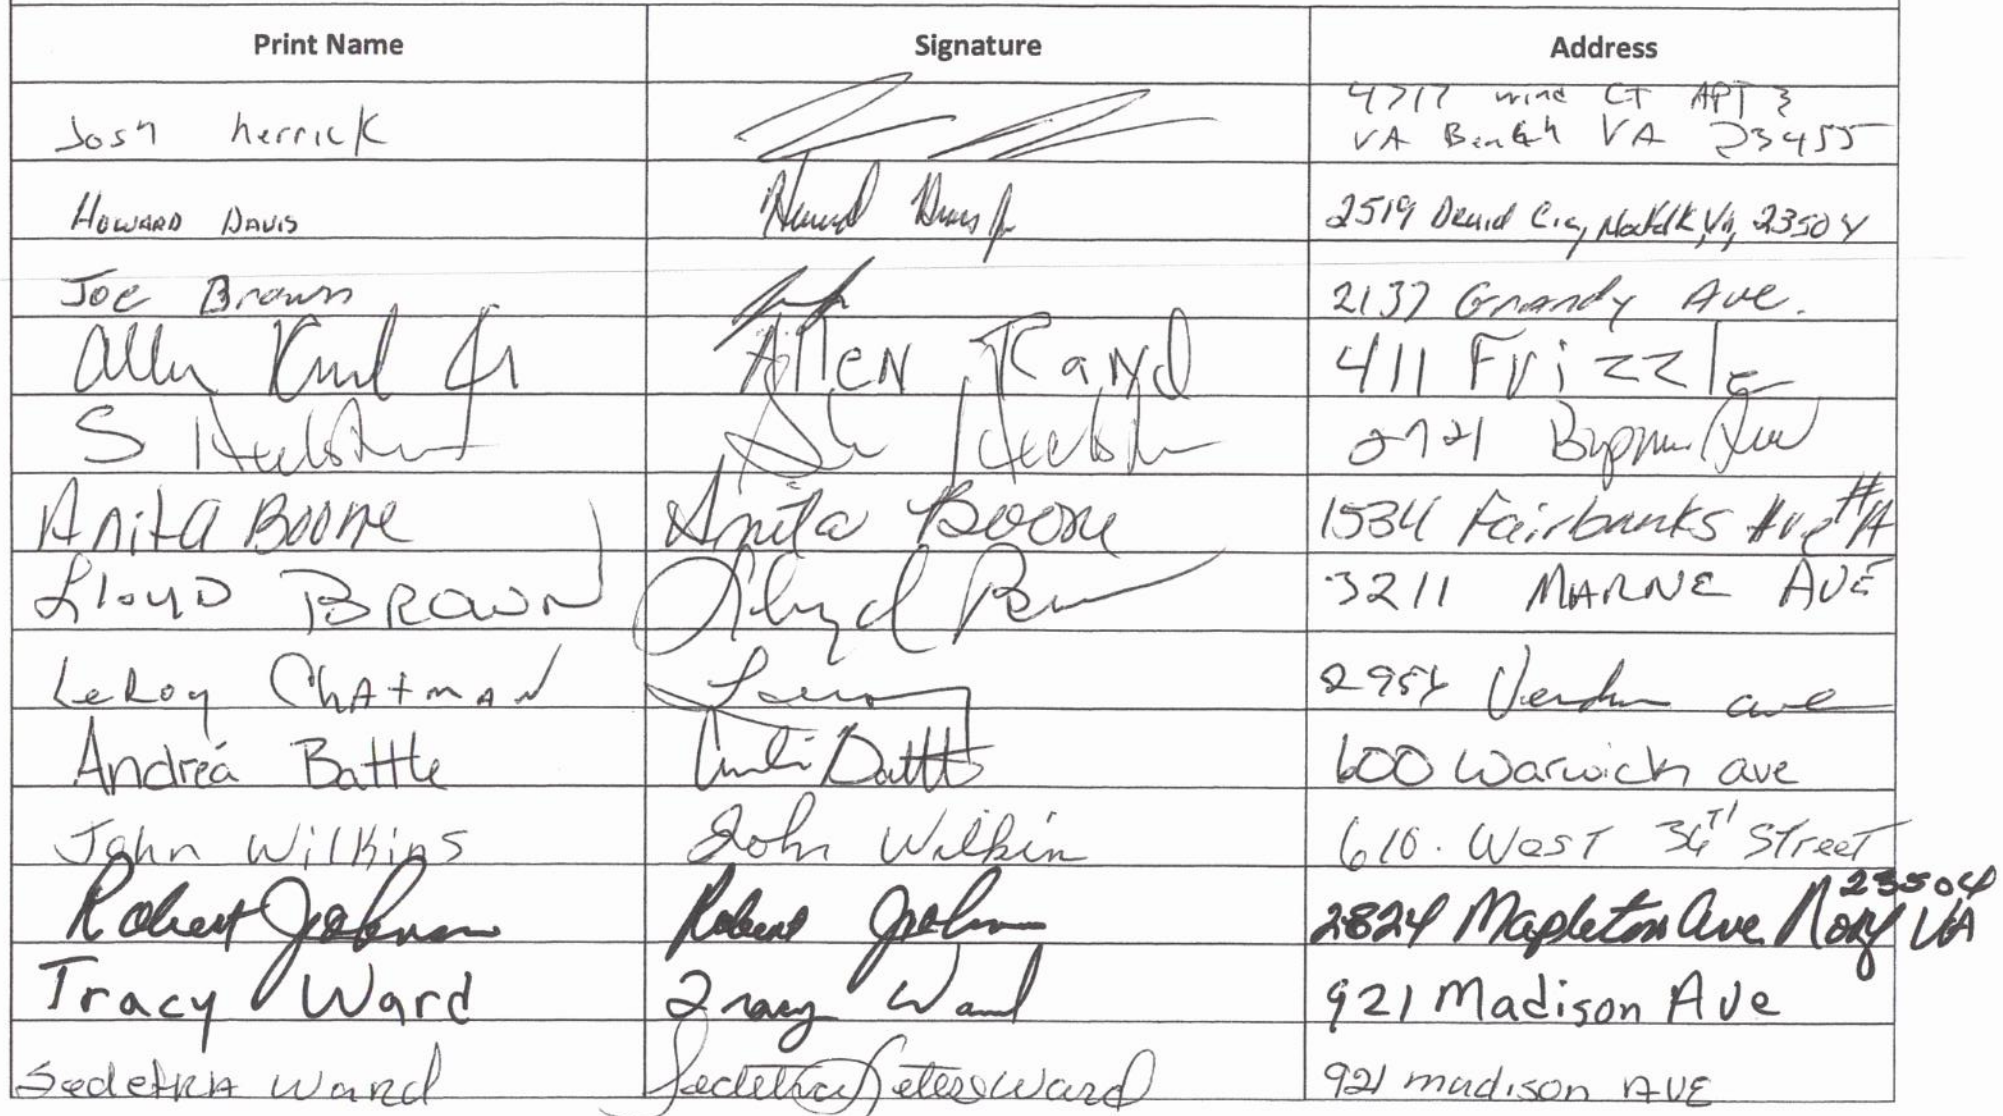 Print Name Signature Address
Josh herrick 4717 wind CT APT 3
VA Beach VA 23455
Howard Davis Howard Davis Jr 2519 Druid Cir, Norfolk, VA, 23504
Joe Brown 2137 Grandy Ave.
Allen Rand Jr Allen Rand 411 Frizzle
S 2721 Ave
Anita Boone Anita Boone 1534 Fairbanks Ave #A
Lloyd BROWN Lloyd Brown 3211 MARNE AVE
LeRoy ChAtmAN Leroy 2954 Verdun ave
Andrea Battle Battle 600 Warwick ave
John Wilkins John Wilkin 610. West 34TH Street
Robert Johnson Robert Johnson 2824 Mapleton Ave Norf VA 23504
Tracy Ward Tracy Ward 921 Madison Ave
SedetRA Ward Ward 921 madison AVE